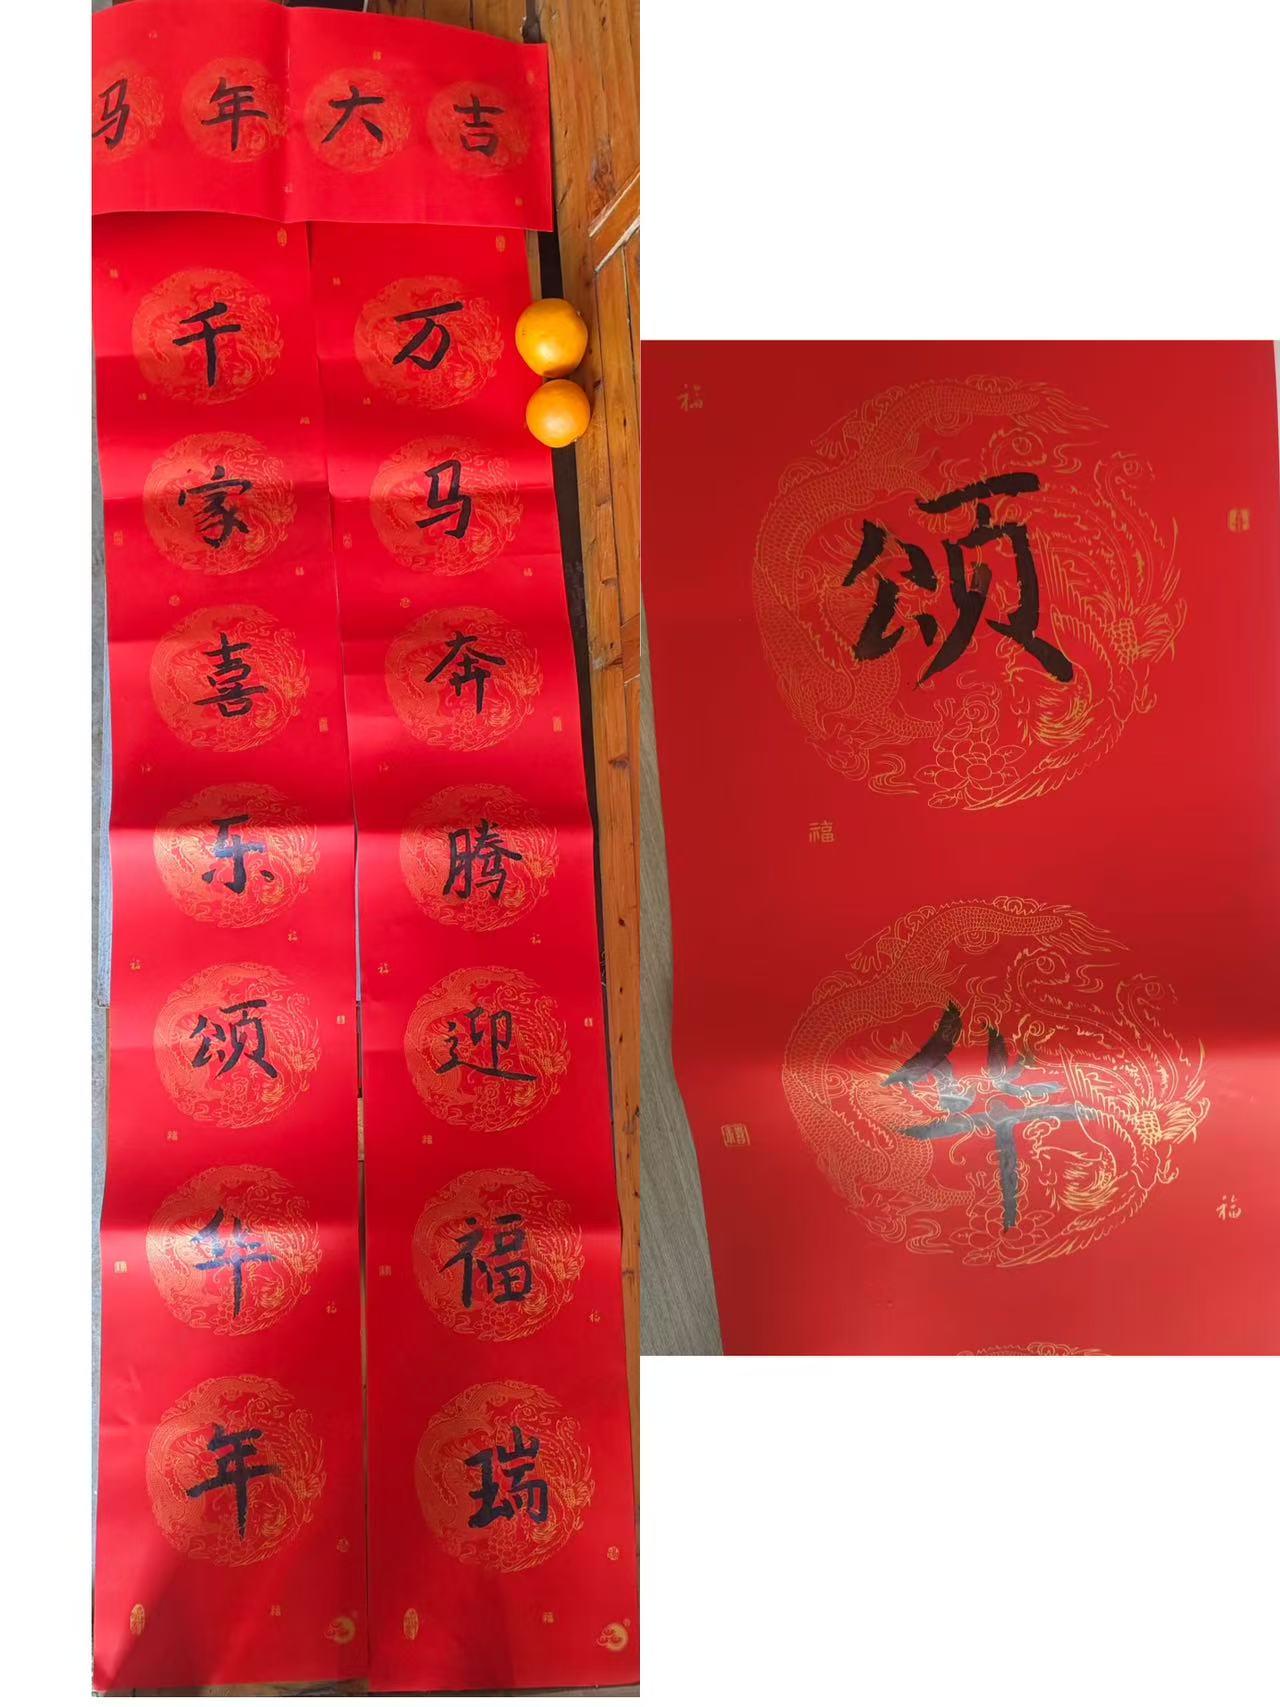 马年大吉
万马奔腾迎福瑞
千家喜乐颂华年
颂华